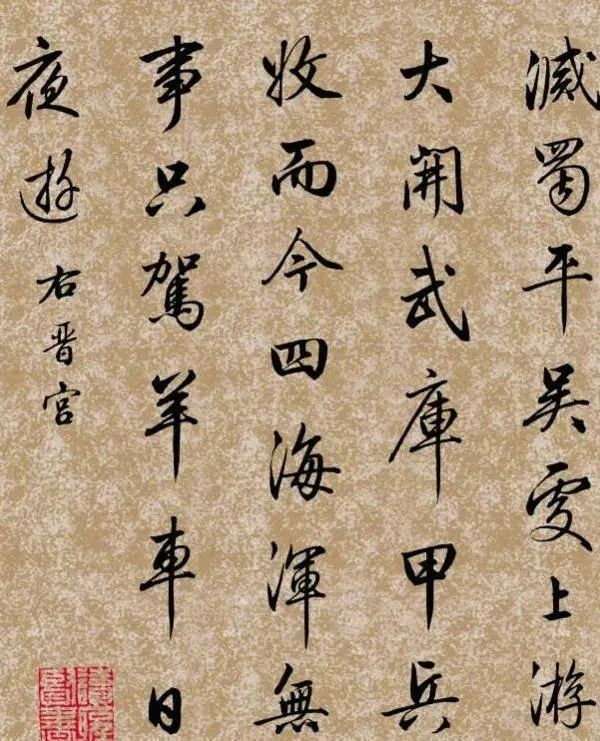 滅蜀平吴受上游
大開武庫甲兵
收而今四海渾無
事只駕羊車日
夜遊 右晋宮